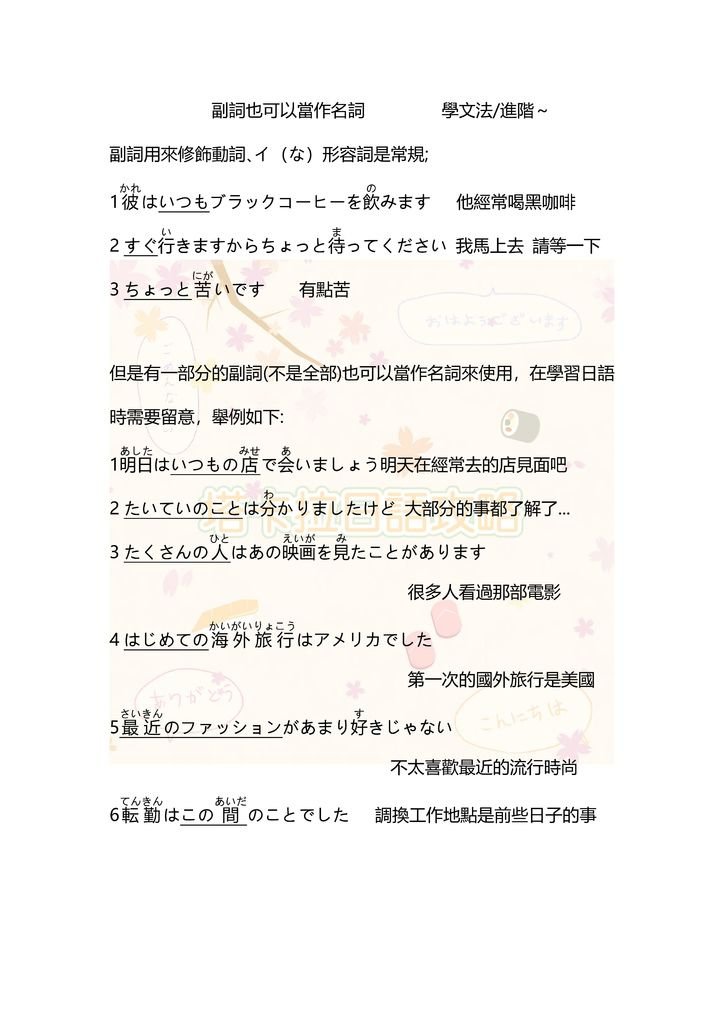 副詞也可以當作名詞 學文法/進階~
副詞用來修飾動詞、イ（な）形容詞是常規;
かれ の
1彼はいつもブラックコーヒーを飲みます 他經常喝黑咖啡
い ま
2 すぐ行きますからちょっと待ってください 我馬上去 請等一下
にが
3 ちょっと苦いです 有點苦
おはようございます
但是有一部分的副詞(不是全部)也可以當作名詞來使用，在學習日語
時需要留意，舉例如下:
あした みせ あ
1明日はいつもの店で会いましょう明天在經常去的店見面吧
わ
2 たいていのことは分かりましたけど 大部分的事都了解了...
塔卡拉日語攻略
ひと えいが み
3 たくさんの人はあの映画を見たことがあります
很多人看過那部電影
かいがいりょこう
4 はじめての海外旅行はアメリカでした
第一次的國外旅行是美國
ありがとう
こんにちは
さいきん す
5最近のファッションがあまり好きじゃない
不太喜歡最近的流行時尚
てんきん あいだ
6転勤はこの間のことでした 調換工作地點是前些日子的事